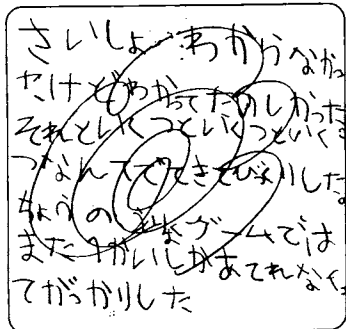 さいしょわからなかっ
たけどわかってたのしかった
それといくつといくつといく
つなんてでてきてびっくりした
ちょうの ゲームでは
また1かいしかあてれなく
てがっかりした